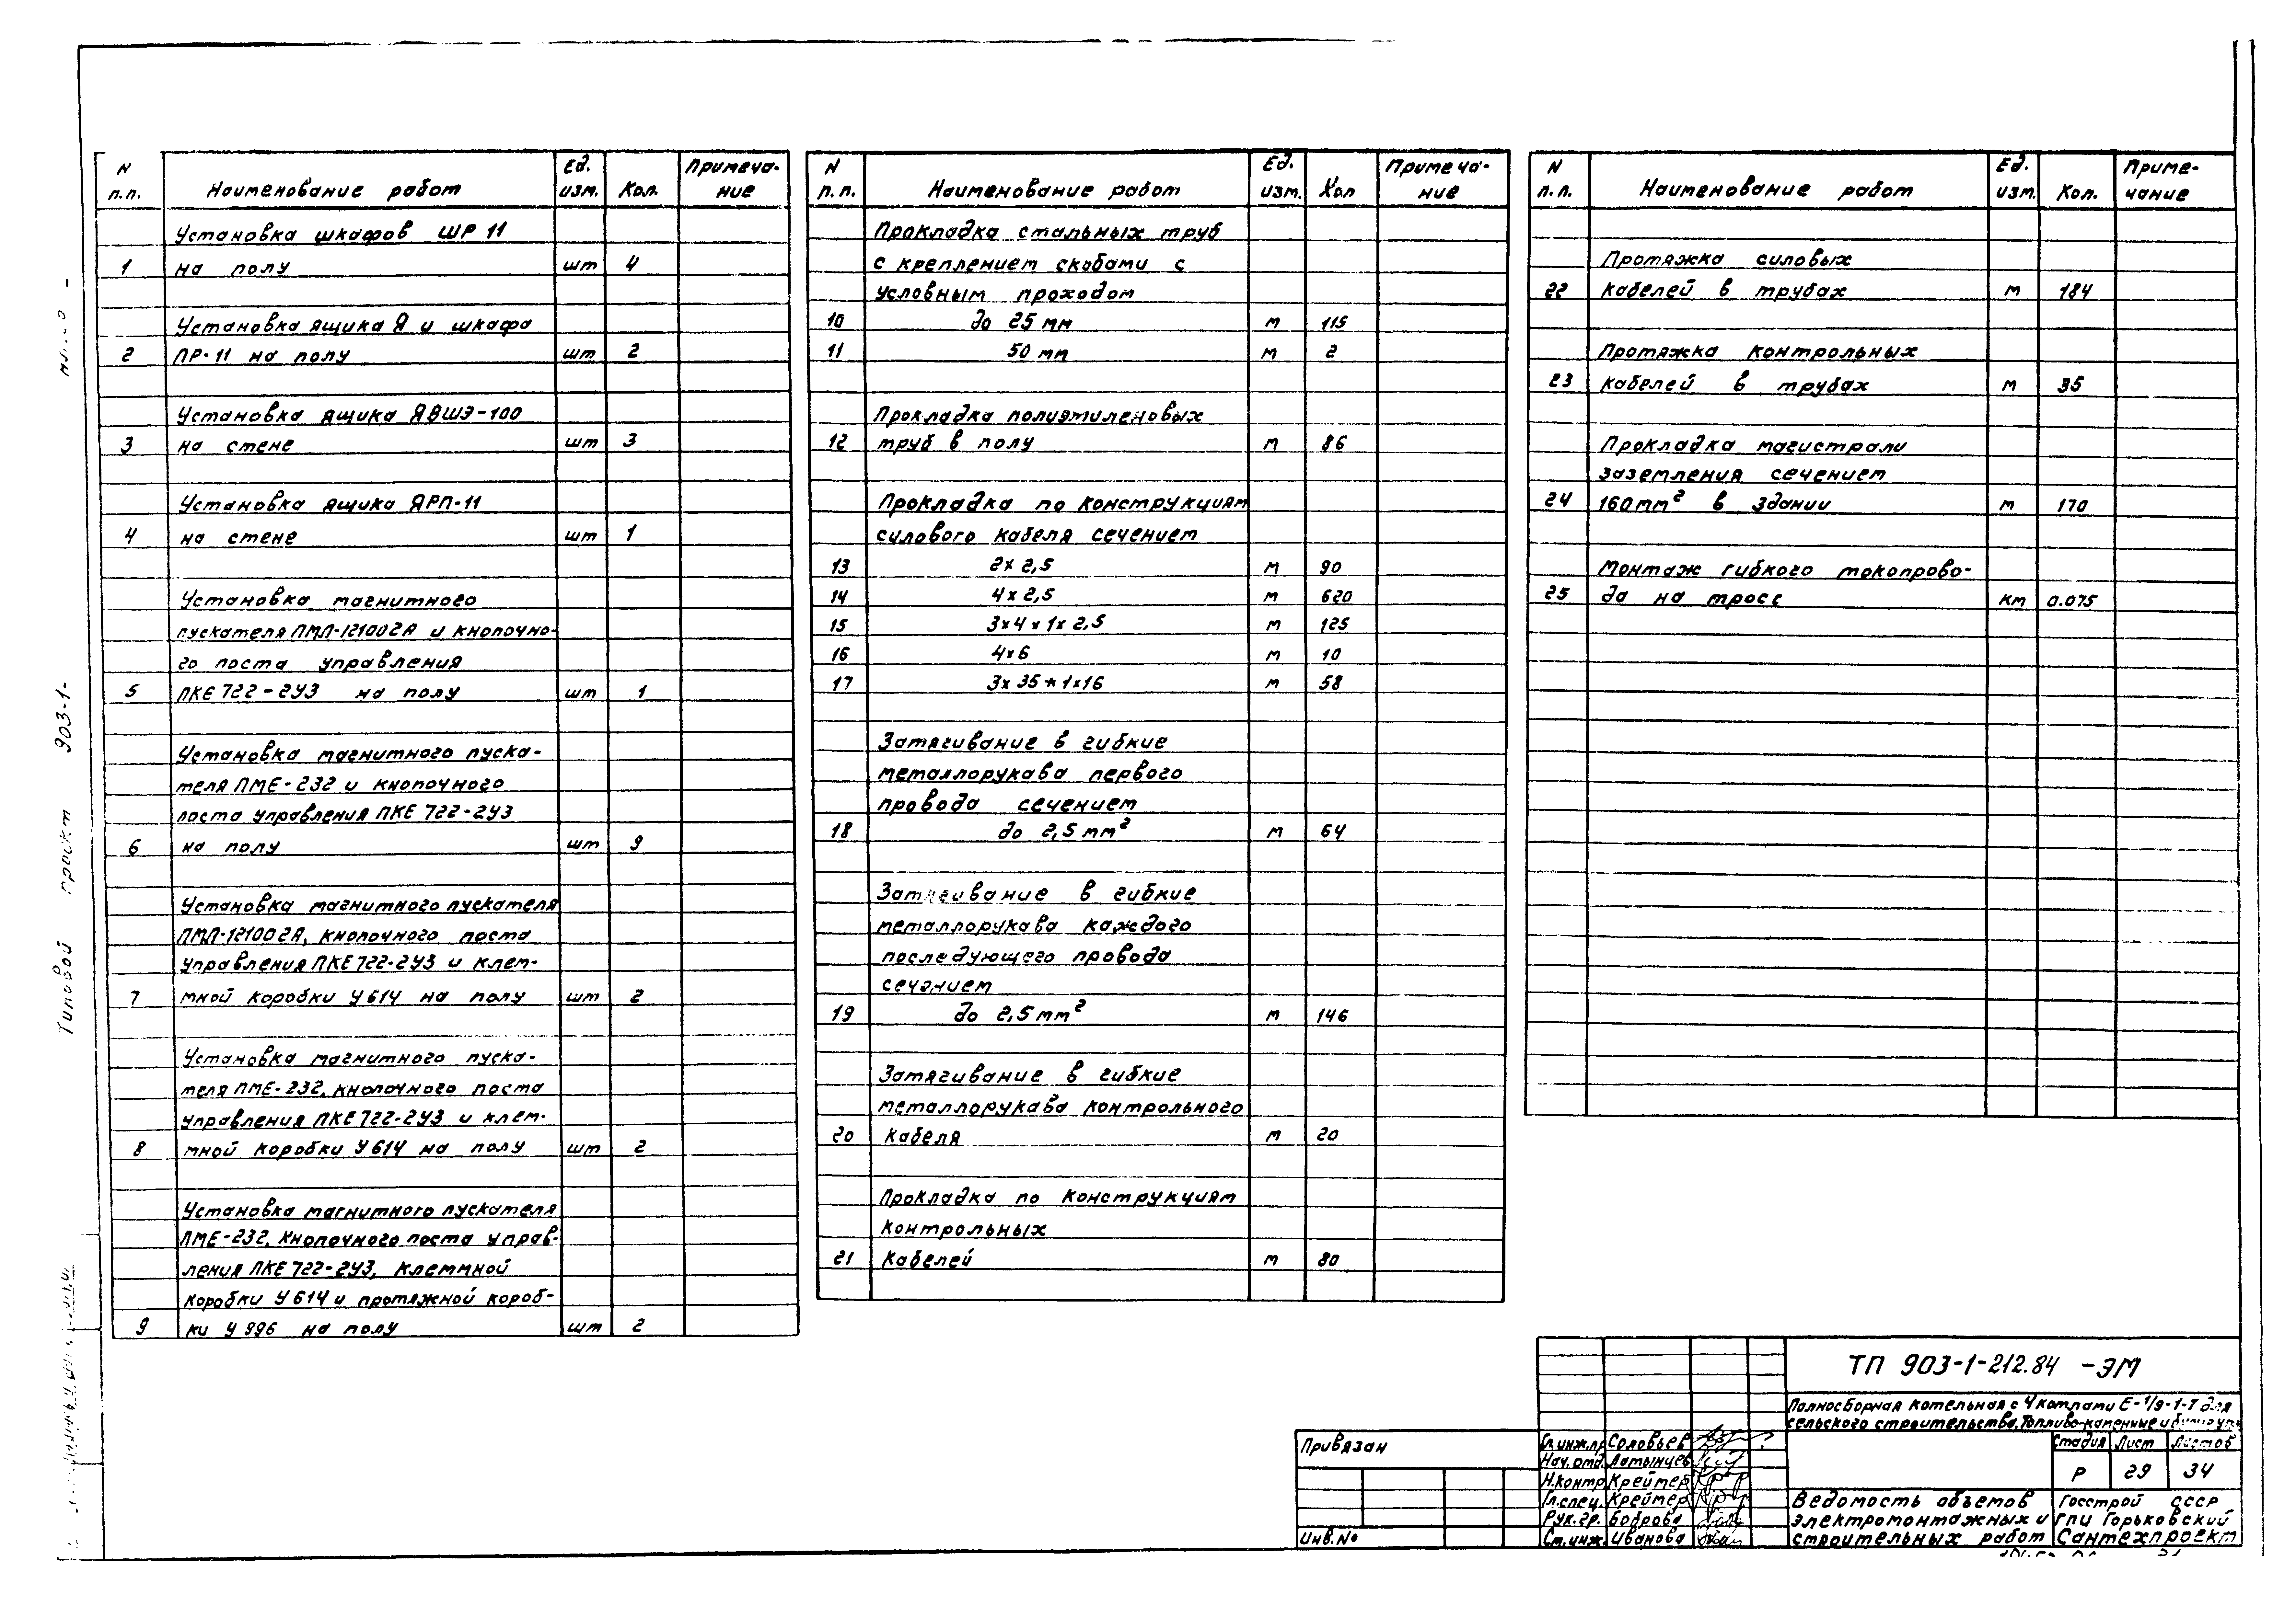 N п.п. Наименование работ Ед. изм. Кол. Примеча-ние
Установка шкафов ШР 11
1 на полу шт 4
Установка ящика Я и шкафа
2 ПР-11 на полу шт. 2
Установка ящика ЯВШЭ-100
3 на стене шт 3
Установка ящика ЯРП-11
4 на стене шт 1
Установка магнитного
пускателя ПМЛ-121002А и кнопочно-
го поста управления
5 ПКЕ 722-2У3 на полу шт 1
Установка магнитного пуска-
теля ПМЕ-232 и кнопочного
поста управления ПКЕ 722-2У3
6 на полу шт 9
Установка магнитного пускателя
ПМЛ-121002А, кнопочного поста
управления ПКЕ 722-2У3 и клем-
7 мной коробки У614 на полу шт 2
Установка магнитного пуска-
теля ПМЕ-232, кнопочного поста
управления ПКЕ 722-2У3 и клем-
8 мной коробки У614 на полу шт 2
Установка магнитного пускателя
ПМЕ-232, кнопочного поста управ-
ления ПКЕ 722-2У3, клеммной
коробки У614 и протяжной короб-
9 ки У996 на полу шт 2
N п.п. Наименование работ Ед. изм. Кол Примеча-ние
Прокладка стальных труб
с креплением скобами с
условным проходом
10 до 25 мм м 115
11 50 мм м 2
Прокладка полиэтиленовых
12 труб в полу м 86
Прокладка по конструкциям
силового кабеля сечением
13 2х2,5 м 90
14 4х2,5 м 620
15 3х4х1х2,5 м 125
16 4х6 м 10
17 3х35+1х16 м 58
Затягивание в гибкие
металлорукава первого
провода сечением
18 до 2,5 мм² м 64
Затягивание в гибкие
металлорукава каждого
последующего провода
сечением
19 до 2,5 мм² м 146
Затягивание в гибкие
металлорукава контрольного
20 кабеля м 20
Прокладка по конструкциям
контрольных
21 кабелей м 80
N п.п. Наименование работ Ед. изм. Кол. Приме-чание
Протяжка силовых
22 кабелей в трубах м 184
Протяжка контрольных
23 кабелей в трубах м 35
Прокладка магистрали
заземления сечением
24 160мм² в здании м 170
Монтаж гибкого токопрово-
25 да на тросс км 0.075
Типовой проект 903-1-
ТП 903-1-212.84 -ЭМ
Полносборная котельная с 4 котлами Е-1/9-1-Т для
сельского строительства. Топливо-каменные и бурые
Привязан
Инв.№
Гл.инж.пр Соловьев
Нач.отд. Латынцев
Н.контр. Крейтер
Гл.спец. Крейтер
Рук.гр. Боброва
Ст.инж. Иванова
Стадия Лист Листов
Р 29 34
Ведомость объемов
электромонтажных и
строительных работ
Госстрой СССР
ГПИ Горьковский
Сантехпроект